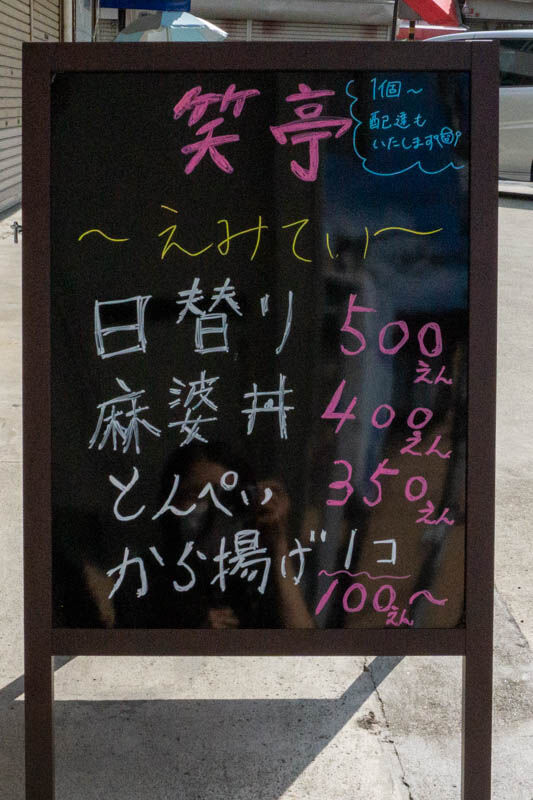 笑亭
1個～
配達も
いたします
～えみてぃ～
日替り 500えん
麻婆丼 400えん
とんぺい 350えん
から揚げ 1コ
100えん～